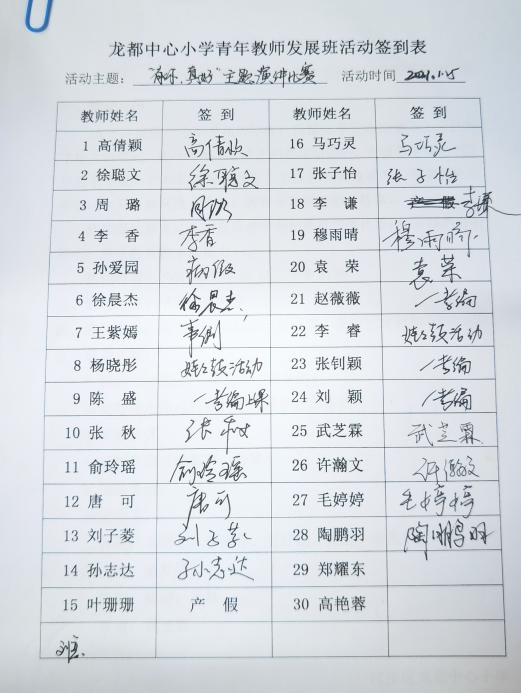 龙都中心小学青年教师发展班活动签到表
活动主题: 真好"主题演讲比赛 活动时间 2021.1.15
教师姓名 签 到 教师姓名 签 到
1 高倩颖 高倩颖 16 马巧灵 马巧灵
2 徐聪文 徐聪文 17 张子怡 张子怡
3 周 璐 周璐 18 李 谦 产 假 李谦
4 李 香 李香 19 穆雨晴 穆雨晴
5 孙爱园 病假 20 袁 荣 袁荣
6 徐晨杰 徐晨杰 21 赵薇薇 考编
7 王紫嫣 事假 22 李 睿 活动
8 杨晓彤 活动 23 张钊颖 考编
9 陈 盛 考编上课 24 刘 颖 考编
10 张 秋 张秋 25 武芝霖 武芝霖
11 俞玲瑶 俞玲瑶 26 许瀚文 许瀚文
12 唐 可 唐可 27 毛婷婷 毛婷婷
13 刘子菱 刘子菱 28 陶鹏羽 陶鹏羽
14 孙志达 孙志达 29 郑耀东
15 叶珊珊 产 假 30 高艳蓉